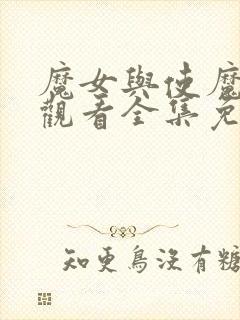 魔女與使魔
觀看全集免
知更鳥沒有糖